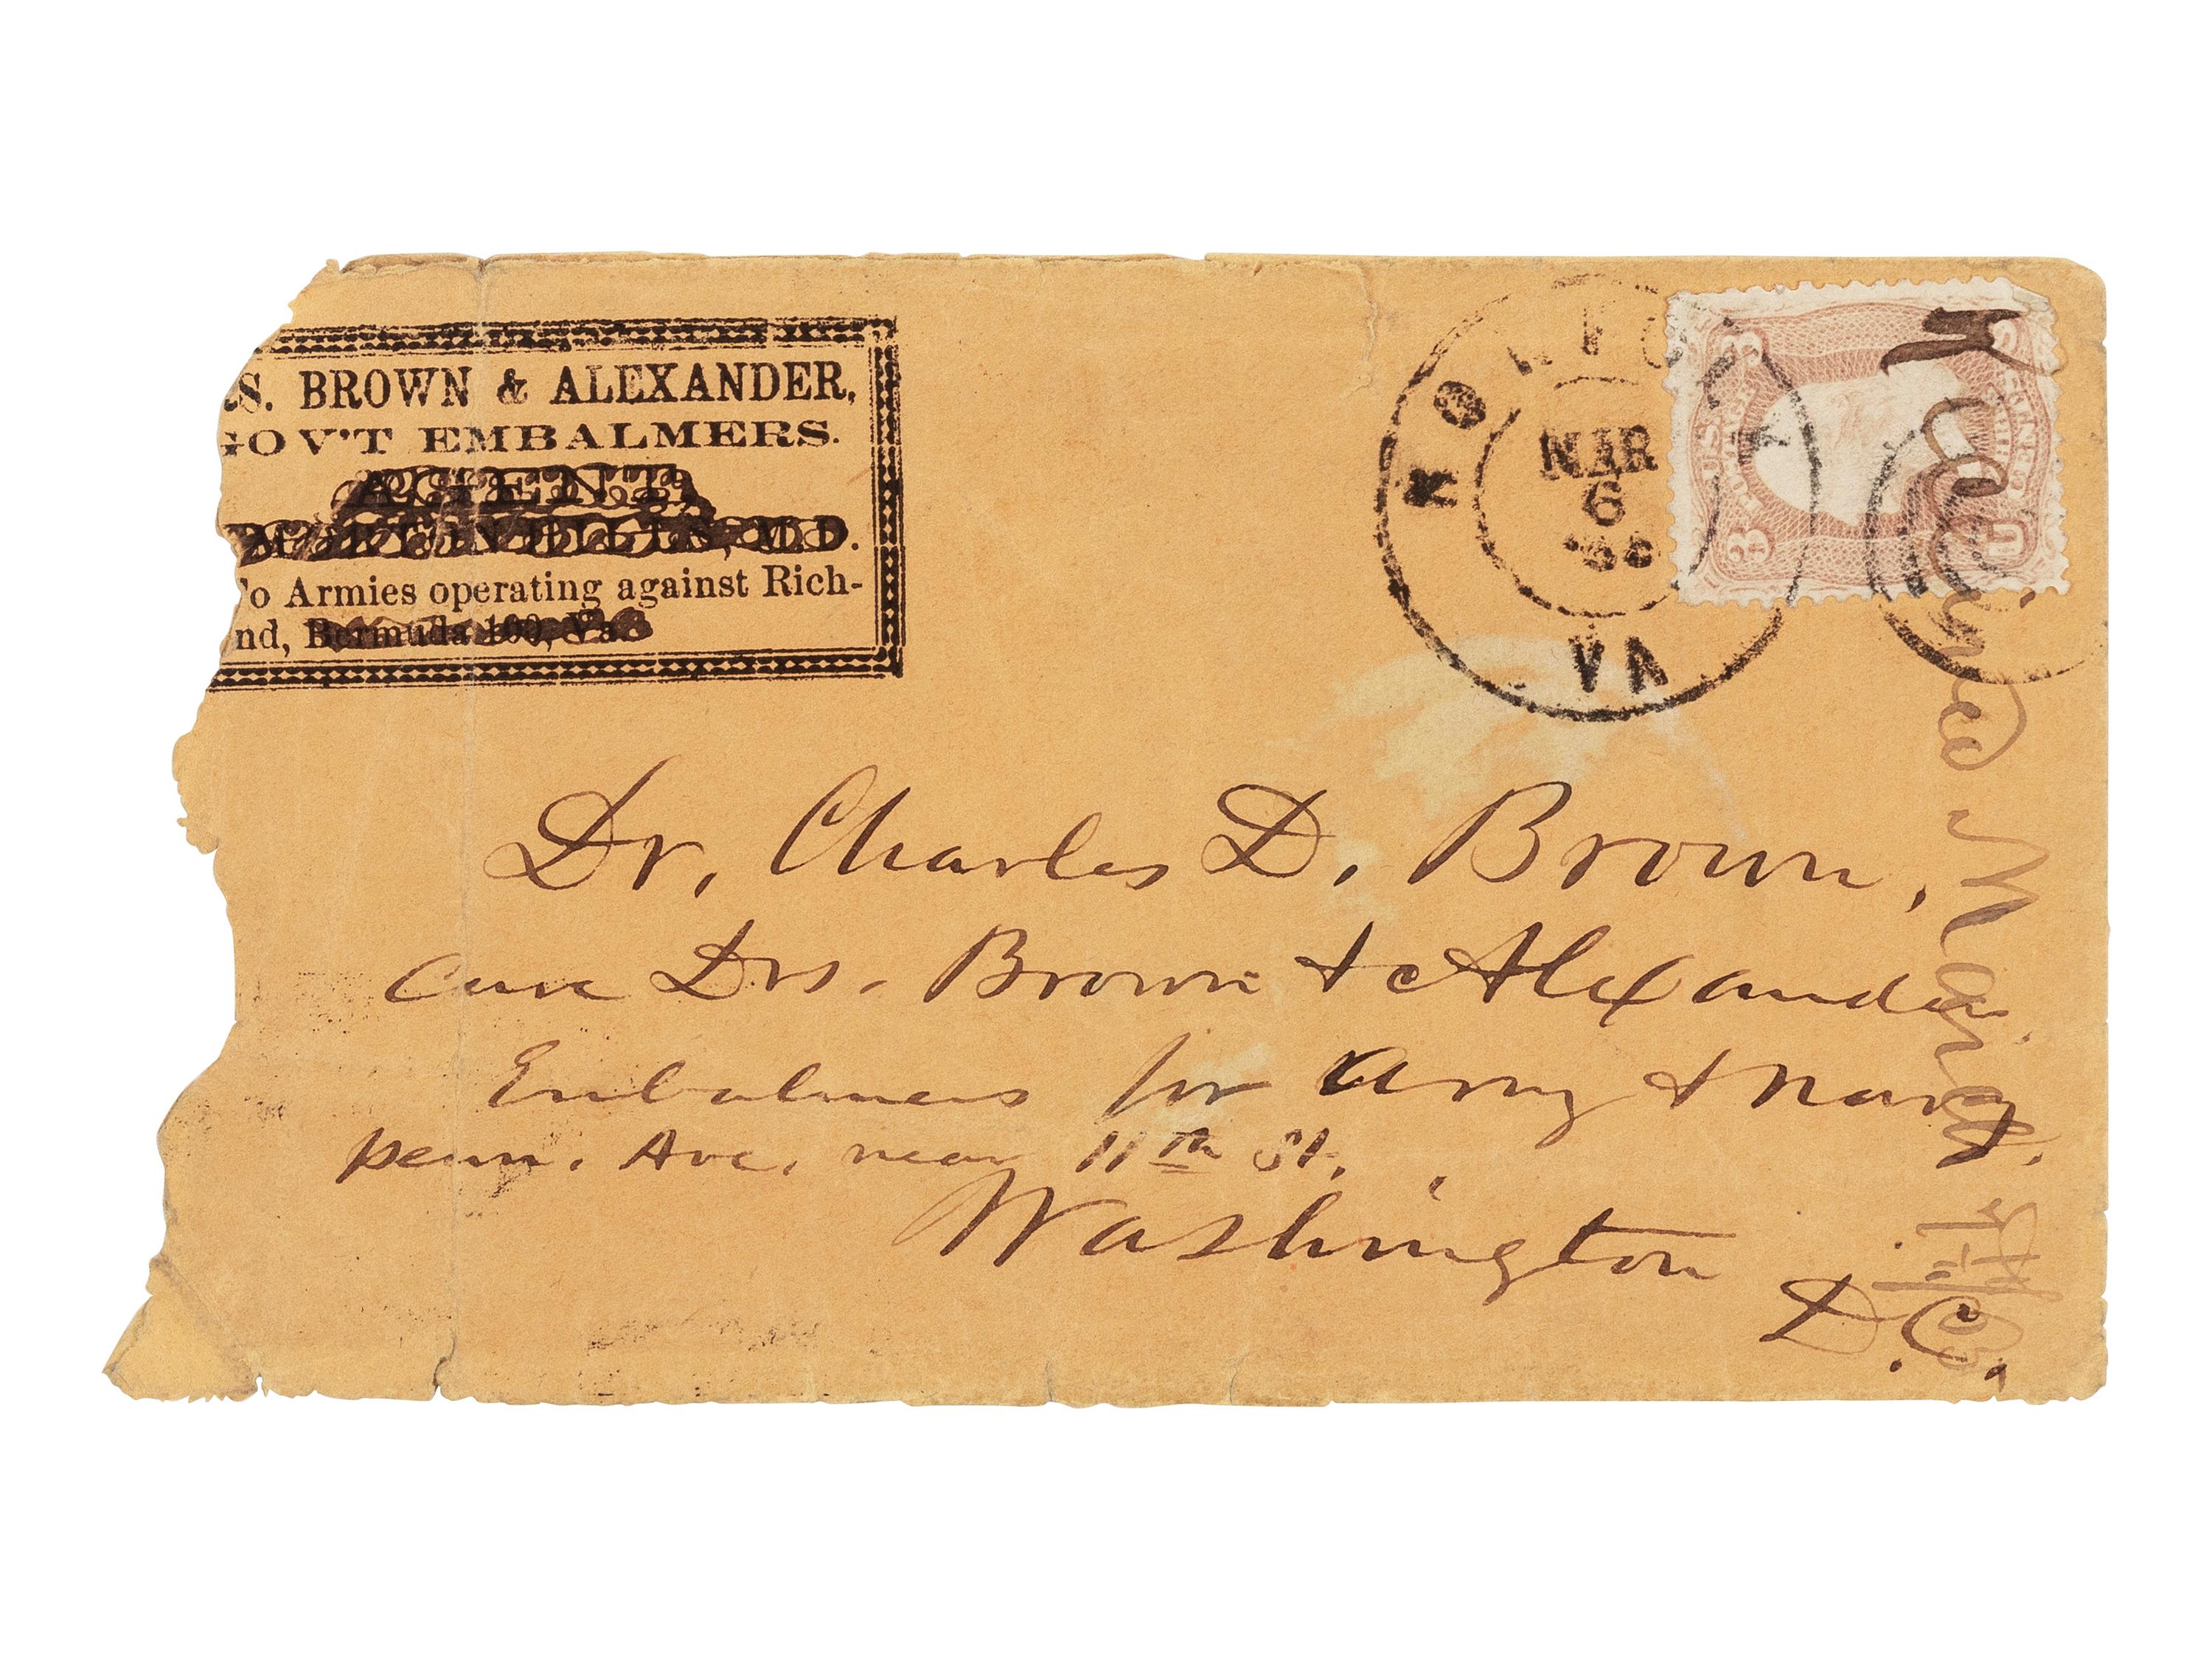 S. BROWN & ALEXANDER,
GOV'T EMBALMERS.
AGENT,
M.D.
To Armies operating against Rich-
nd, Bermuda 100, Va.
NORFOLK
MAR
6
VA
3
3
U
Dr. Charles D. Brown,
Care Drs. Brown & Alexander
Embalmers for Army & Navy.
Penn. Ave. near 11th St.
Washington
D.C.
Received March